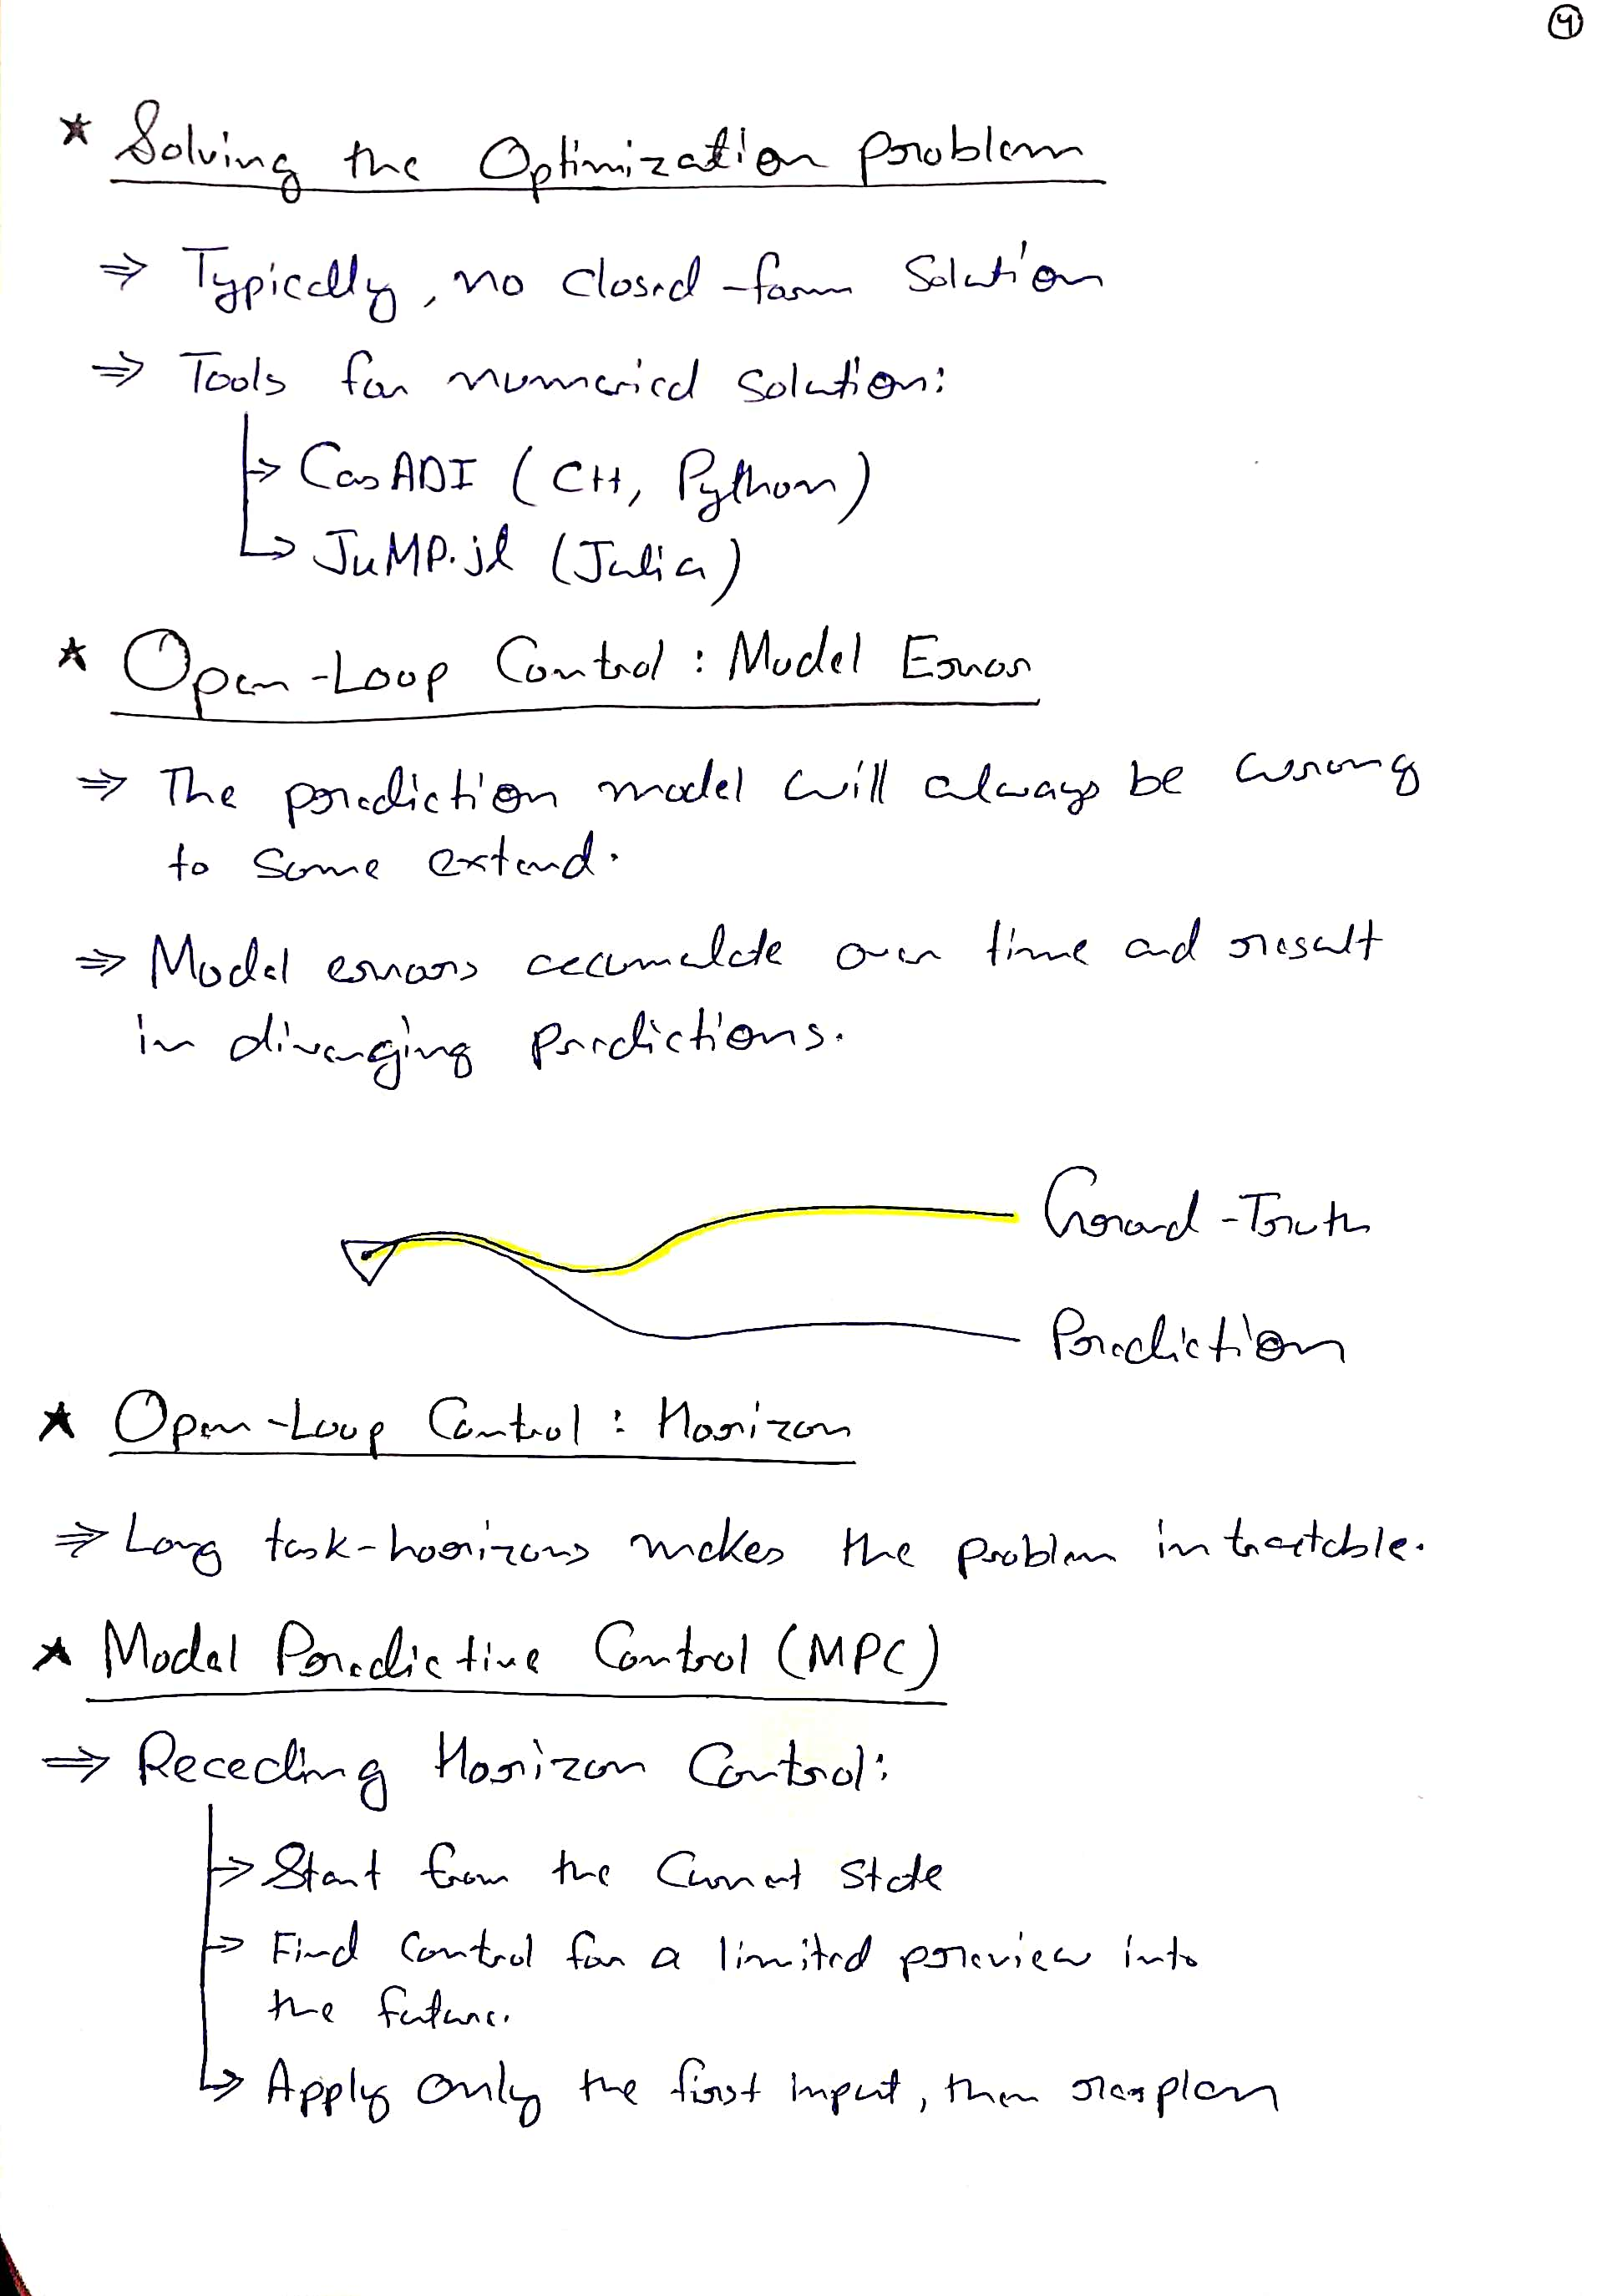 4
* Solving the Optimization problem
⇒ Typically, no closed-form Solution
⇒ Tools for numerical Solution:
↳ CasADI (C++, Python)
↳ JuMP.jl (Julia)
* Open-Loop Control : Model Error
⇒ The prediction model will always be wrong
to Some extend.
⇒ Model errors accumulate over time and result
in diverging Predictions.
Ground-Truth
Prediction
* Open-Loop Control : Horizon
⇒ Long task-horizons makes the problem intractable.
* Model Predictive Control (MPC)
⇒ Receding Horizon Control:
↳ Start from the Current State
↳ Find Control for a limited preview into
the future.
↳ Apply only the first input, then replan